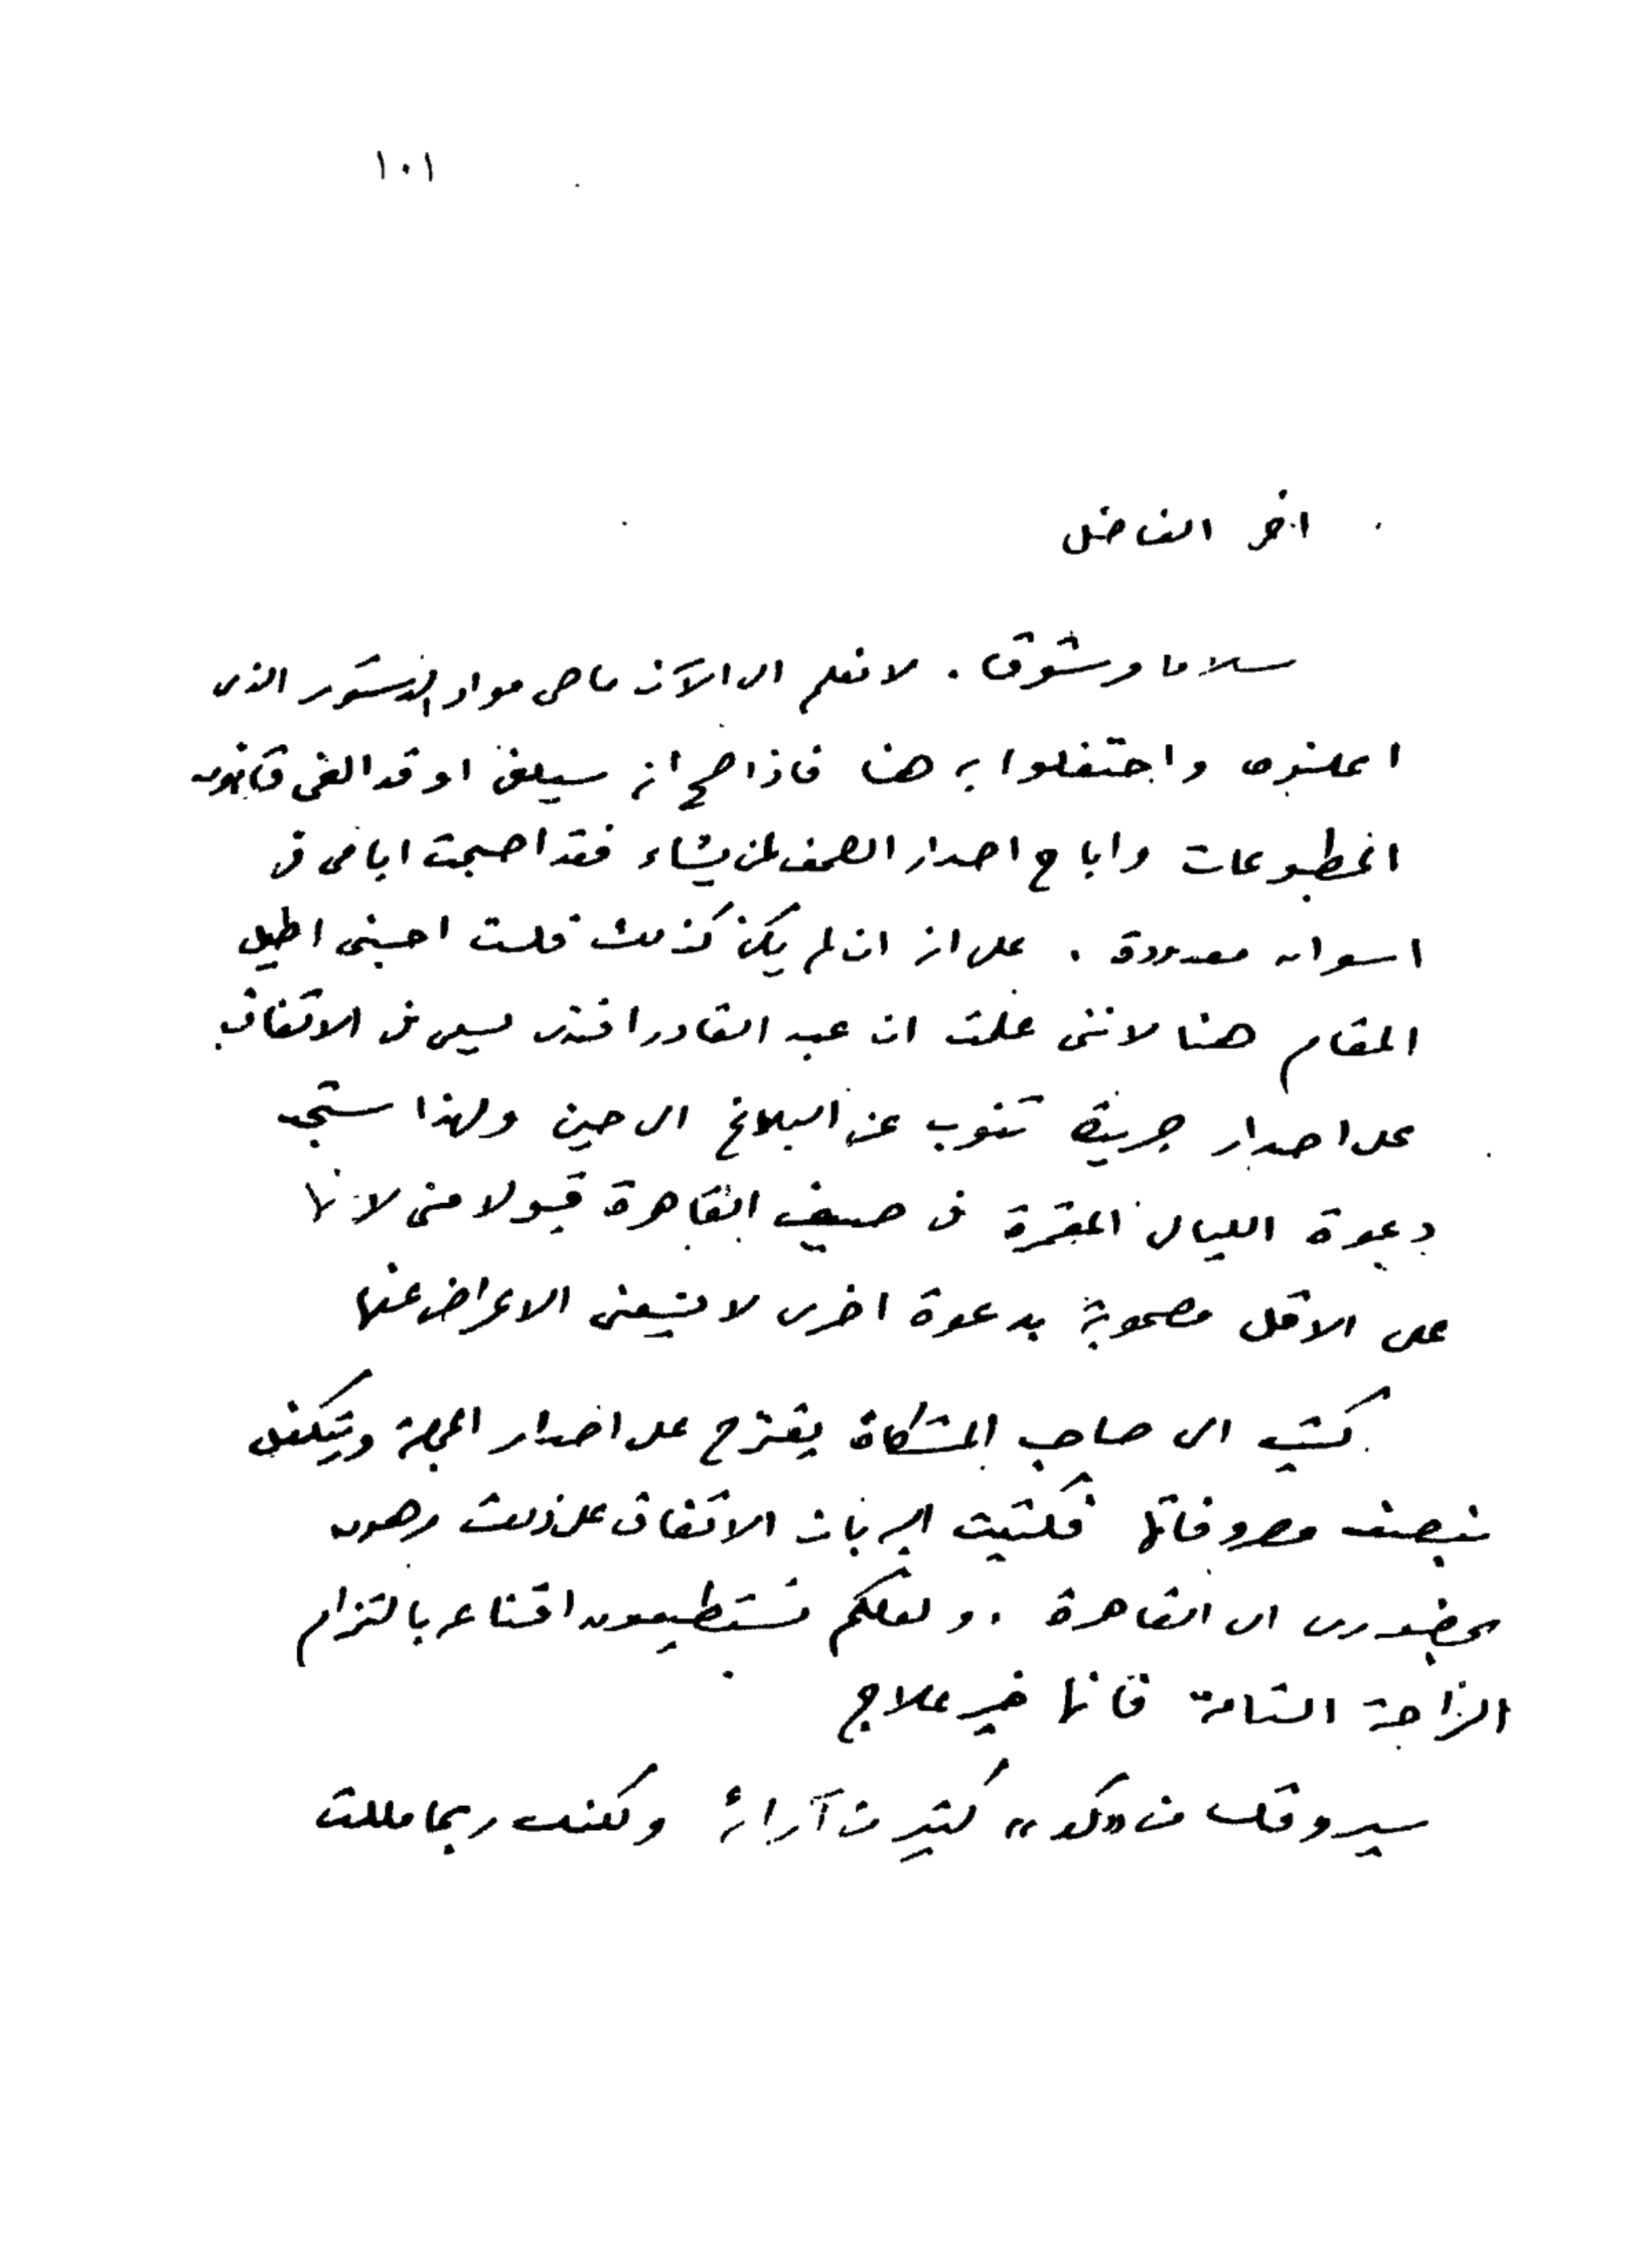 ١٠١
اخى الفاضل
سلاما وشوقا . لا نعلم الى الآن ما هى مواد الدستور الذى
اعلنوه واحتفلوا به هنا فاذا صح انه سيلغى او قد الغى قانون
المطبوعات واباح اصدار الصحف لمن يشاء فقد اصبحت ايامى فى
اسوان معدودة . على انه ان لم يكن كذلك فلست احسبنى اطيل
المقام هنا لاننى علمت ان عبد القادر افندى يسعى فى الاتفاق
على اصدار جريدة تنوب عن البلاغ الى حين ولهذا ستجد
دعوة الليالى المقمرة فى صيف القاهرة قبولا منى لانها
على الاقل مصحوبة بدعوة اخرى لا يسعنى الاعراض عنها
كتب الى صاحب المشكاة يقترح على اصدار المجلة ويتكفل
بنصف مصروفاتها فكتبت اليه بان الاتفاق على ذلك مرهون
بحضورى الى القاهرة . ولعلكم تستطيعون اقناعه بالتزام
الراحة التامة فانها خير علاج
سيروقك من «‏» كثير من آرائه ولكنك ربما مللت